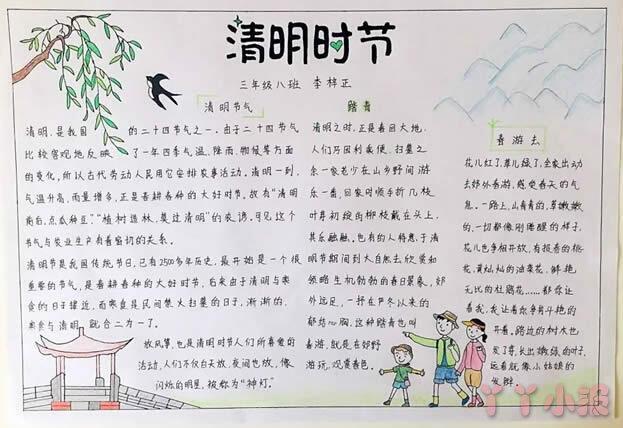 清明时节
三年级八班 李梓正
清明节气
清明,是我国的二十四节气之一。由于二十四节气
比较客观地反映了一年四季气温、降雨、物候等方面
的变化,所以古代劳动人民用它安排农事活动。清明一到,
气温升高,雨量增多,正是春耕春种的大好时节。故有“清明
前后,点瓜种豆”“植树造林,莫过清明”的农谚。可见这个
节气与农业生产有着密切的关系。
清明节是我国传统节日,已有2500多年历史,最开始是一个很
重要的节气,是春耕春种的大好时节,后来由于清明与寒
食的日子接近,而寒食是民间禁火扫墓的日子,渐渐的,
寒食与清明就合二为一了。
放风筝,也是清明时节人们所喜爱的
活动,人们不仅白天放,夜间也放,像
闪烁的明星,被称为“神灯”。
踏青
清明之时,正是春回大地,
人们乃因利乘便,扫墓之
余一家老少在山乡野间游
乐一番,回家时顺手折几枝
叶芽初绽的柳枝戴在头上,
其乐融融。也有的人特意于清
明节期间到大自然去欣赏和
领略生机勃勃的春日景象,郊
外远足,一抒在户冬以来的
郁结心胸,这种踏青也叫
春游,就是在郊野
游玩,观赏春色。
春游去
花儿红了,草儿绿了,全家出动
去郊外春游,感受春天的气
息。一路上,山青青的,草嫩嫩
的,一切都像刚睡醒的样子,
花儿也争相开放,有报春的桃
花,黄灿灿的油菜花,鲜艳
无比的杜鹃花……都你让
着我,我让着你争奇斗艳的
开着。路边的树木也
发了芽,长出嫩绿的叶子,
远看就像小姑娘的
发辫。
丫丫小报